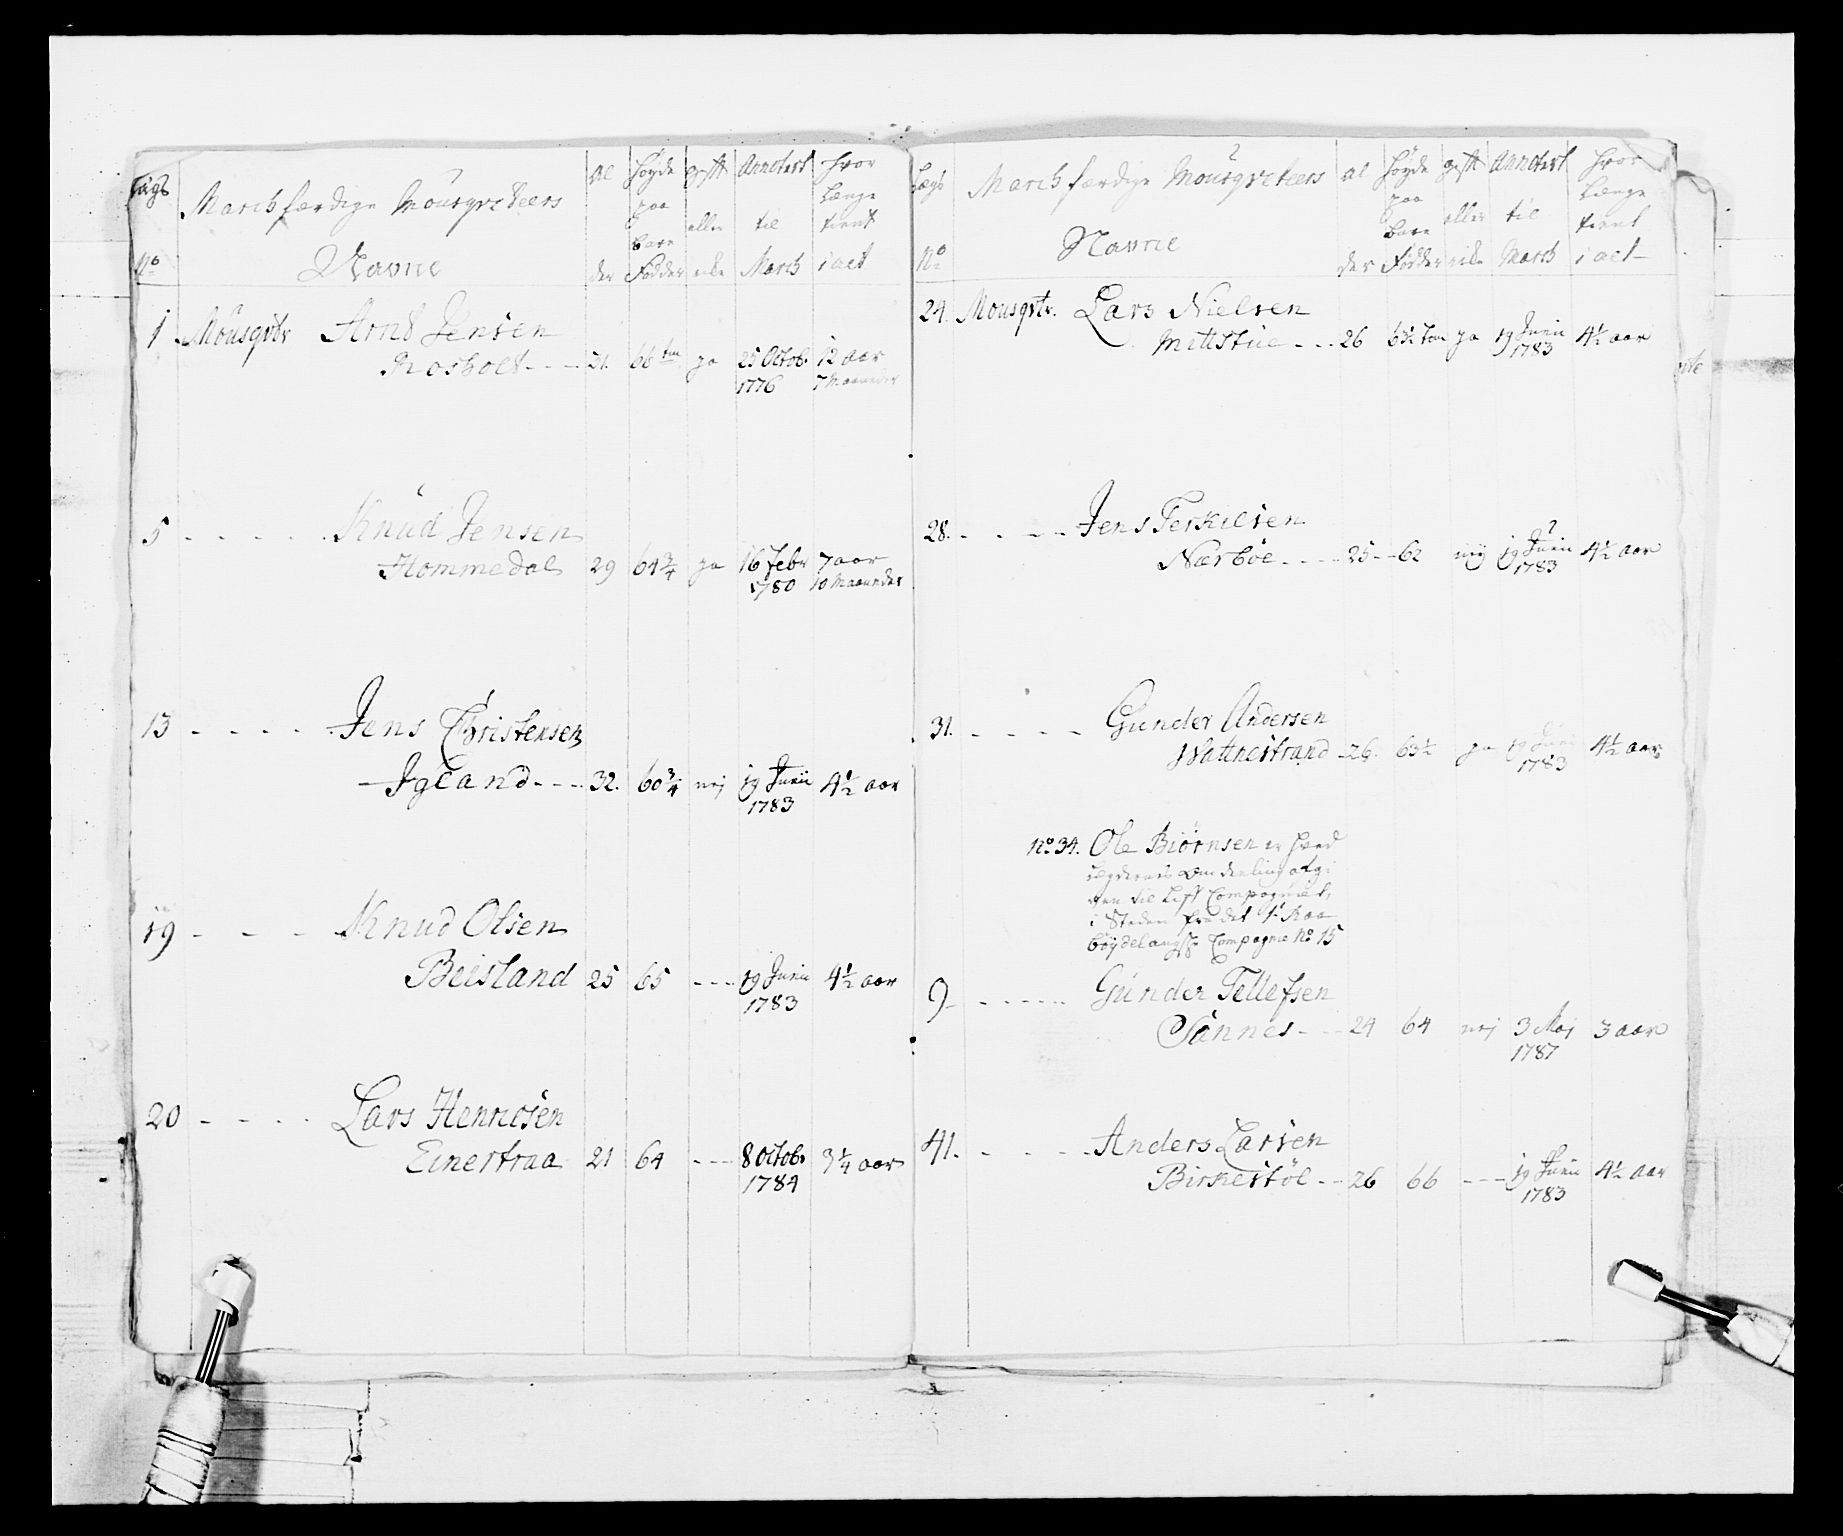 Lægs
No
March færdige Mousqueteers
Navne
Al
der
Høyde
paa
bare
Fødder
gift
eller
eike
Annotert
til
March
hvor
Længe
tient
i alt
1 Mousqvtr Arnt Jensen
Rosholt - - - 31. 66 tm ja 25 Octob. 12 aar
1776 7 Maaneder
5 - - - - - Knud Jensen
Hommedal 29 64 3/4 ja 16 Febr 7 aar
1780 10 Maaneder
13 - - - - - Jens Christensen
Igland - - - 32. 60 3/4 nej 19 Junii 4 1/2 aar
1783
19 - - - Knud Olsen
Beisland 25 65 - - - 19 Junii 4 1/2 aar
1783
20 - - - - Lars Henricsen
Einestraa 21 64 - - - 8 Octob. 3 1/4 aar
1784
Lægs
No
March færdige Mousqveteers
Navne
Al
der
Høyde
paa
bare
Fødder
gift
eller
eike
Annotert
til
March
hvor
Længe
tient
i alt
24. Mousqvtr. Lars Nielsen
Mittstue - - - 26 63 1/2 tm ja 19 Junii 4 1/2 aar
1783
28. - - - - Jens Terkilsen
Nærbøe - - - - 25 - - 62 nej 19 Junii 4 1/2 aar
1783
31. - - - - - Gunder Andersen
Wattnestrand - 26. 63 1/2 ja 19 Junii 4 1/2 aar
1783
No 34. Ole Biørnsen er
til Lift Compagniet,
i Steden fra det 1te Raa
bøydelaugske Compagnie No 15
9 - - - - - - Gunder Tellefsen
Sannes - - - 24 64 nej 3 Maj 3 aar
1787
41. - - - - - Anders Larsen
Birkestøl - - 26 66 - - - 19 Junii 4 1/2 aar
1783